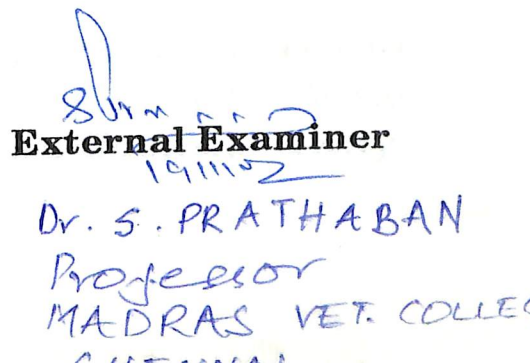 External Examiner
19/11/02
Dr. S. PRATHABAN
Professor
MADRAS VET. COLLEG
CHENNAI